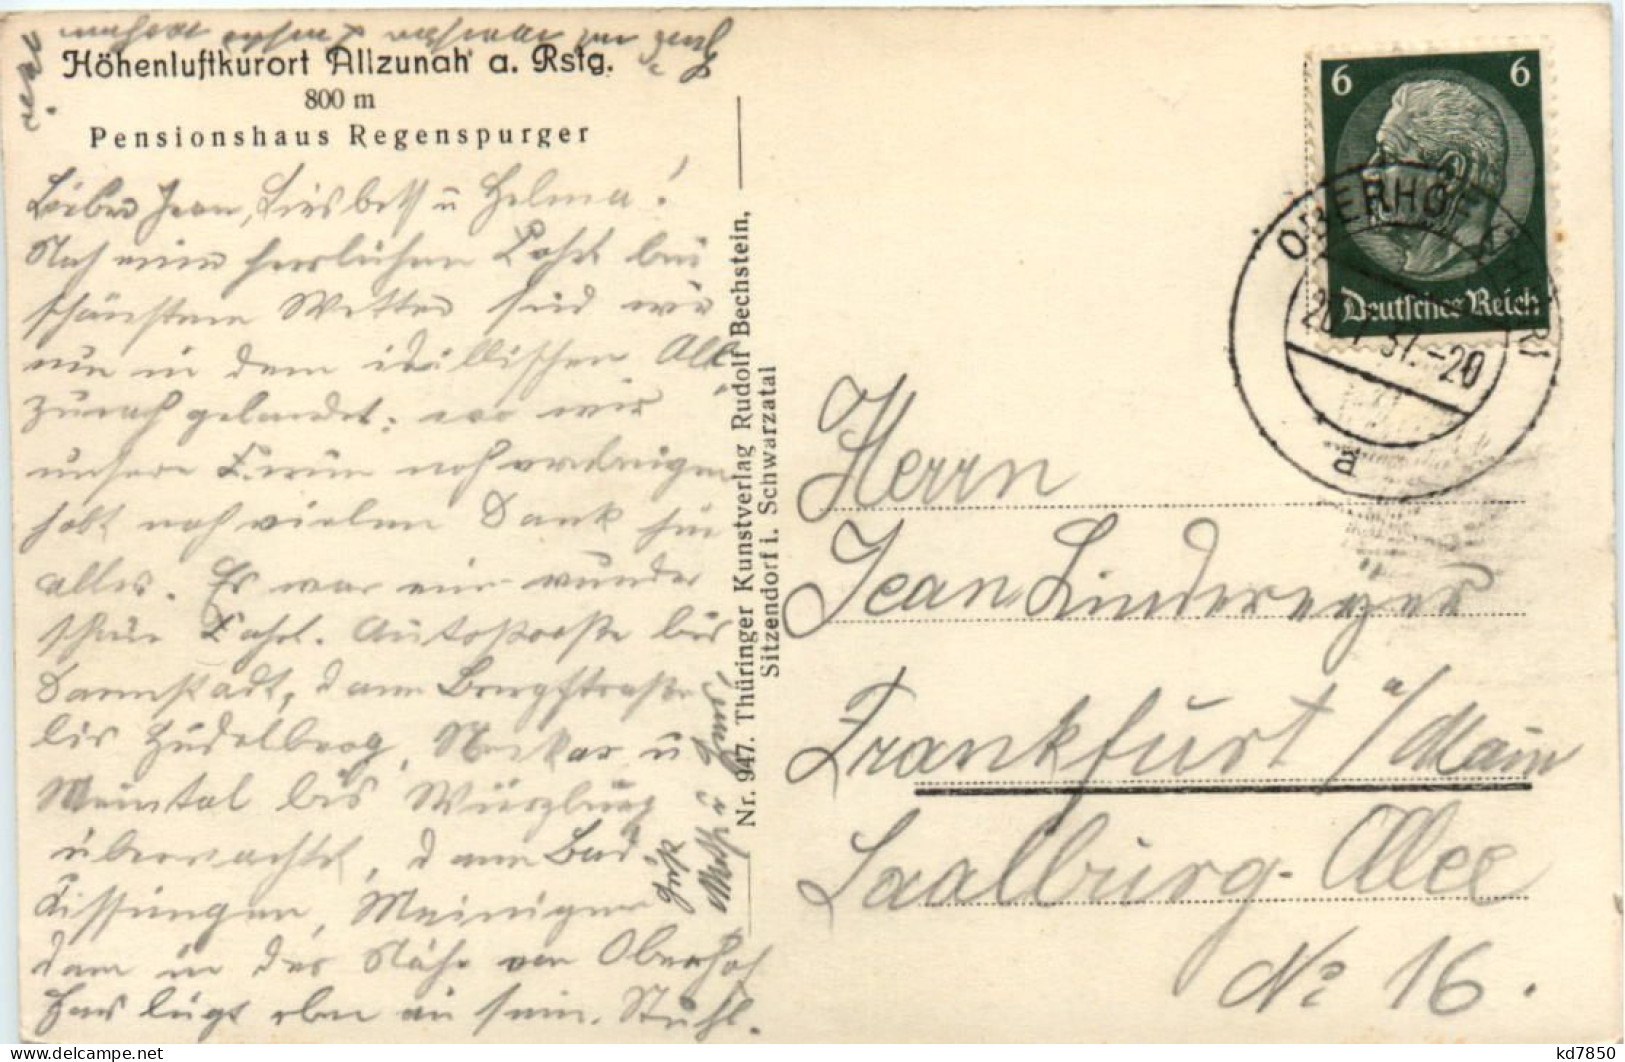 Höhenluftkurort Allzunah a. Rstg.
800 m
Pensionshaus Regenspurger
Lieber Jean, Liesbeth u Helma!
Nach einer herrlichen Fahrt bei
schönstem Wetter sind wir
nun in dem idillischen All-
zunah gelandet; wo wir
unsere Ferien noch verbringen
habt noch vielen Dank für
alles. Es war eine wunder
schöne Fahrt. Autostraße bis
Darmstadt, dann Bergstraße
bis Heidelberg, Neckar u
Maintal bis Würzburg
übernachtet, dann Bad-
Kissingen, Meiningen
dann in der Nähe von Oberhof
Hans liegt eben in sein. Stuhl.
Nr. 947. Thüringer Kunstverlag Rudolf Bechstein,
Sitzendorf i. Schwarzatal
6 6
Deutsches Reich
OBERHOF
20 7 37.-20
a
Herrn
Jean
Frankfurt a/Main
Saalburg-Allee
No 16.
kd7850